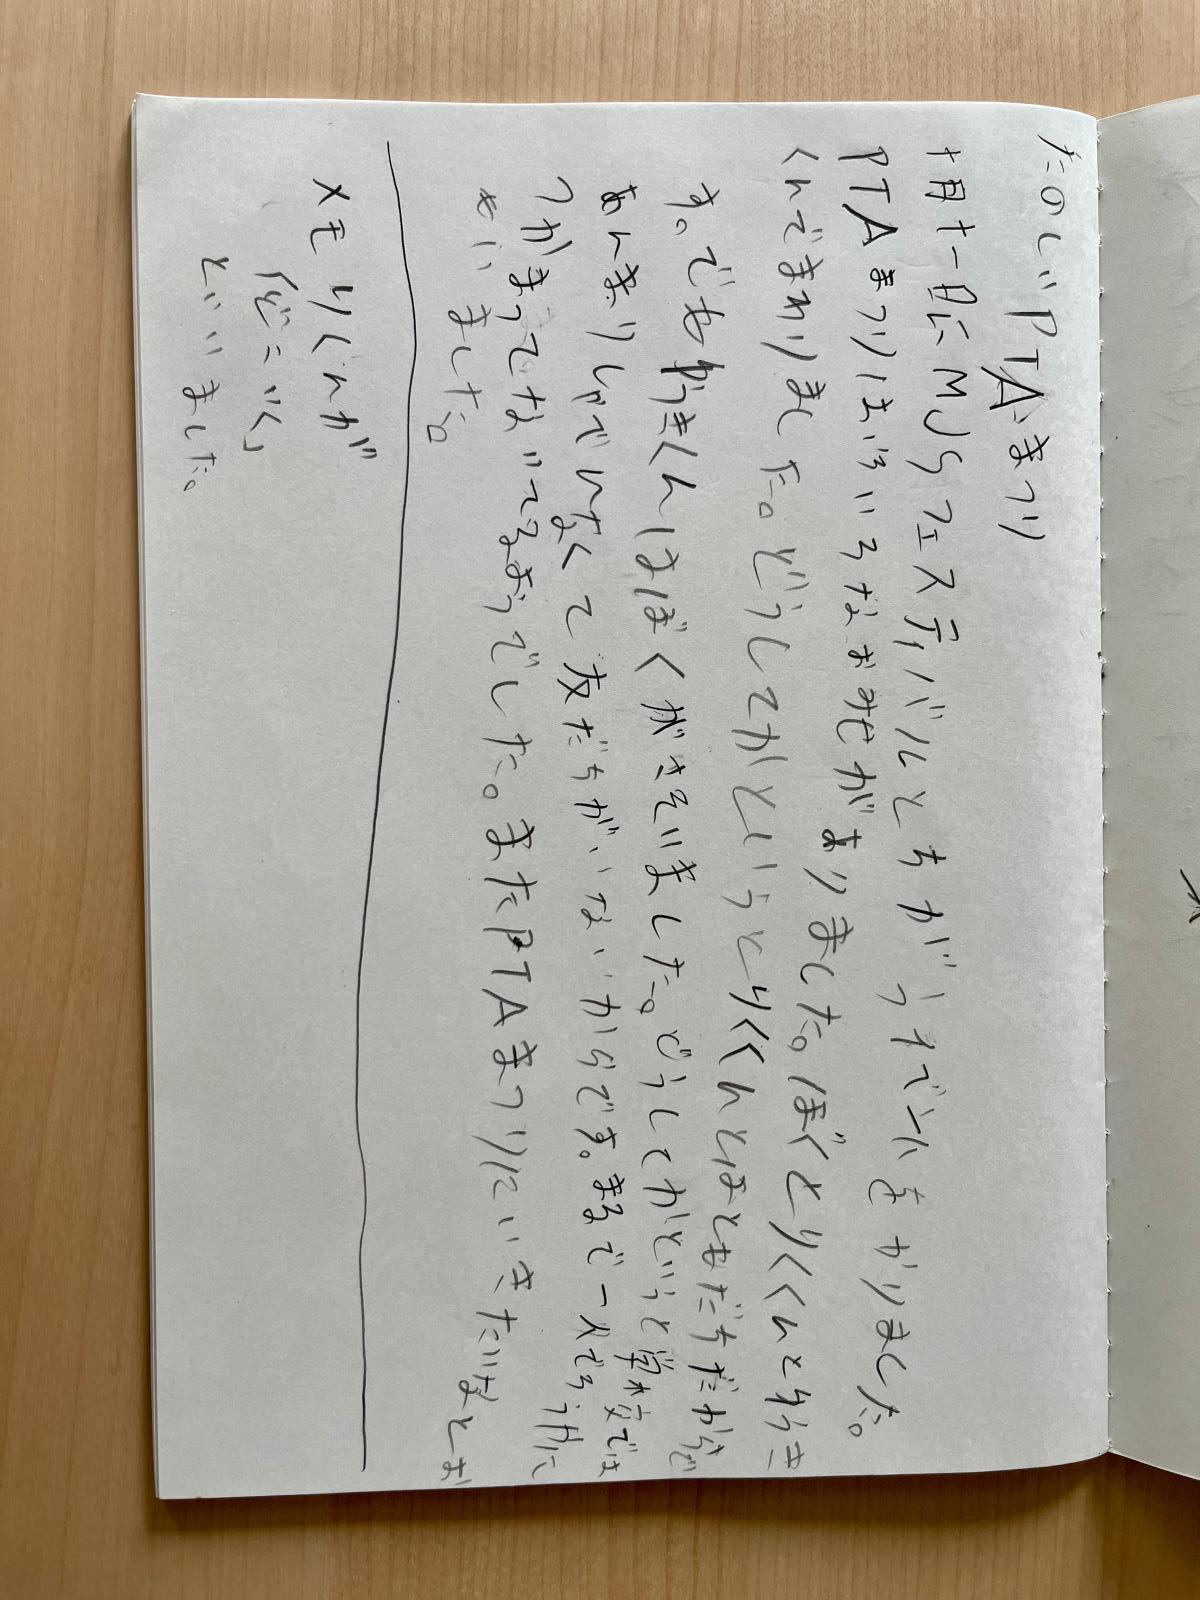 たのしいPTAまつり
十月十一日にMJSフェスティバルとちがう所で小をかりました。
PTAまつりはいろいろなお店がありました。ぼくとりくくんとゆうき
くんでまわりました。どうしてかというとりくくんとはともだちだからで
す。でもゆうきくんはぼくがさそいました。どうしてかというと学校では
あんまりしゃべんなくて友だちがいないからです。まるで一人でろう下に
つかまってないてるようでした。またPTAまつりにいきたいなとお
もいました。
メモ りくくんが
「どこいく」
といいました。